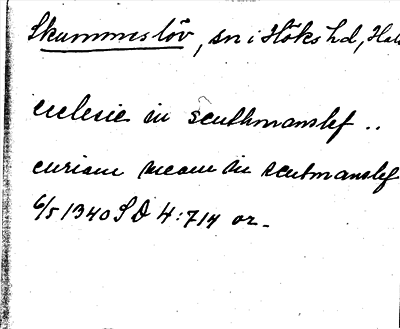 Skummeslöv, sn i Höks hd, Hall
ecclesie in scuthmanslef ..
curiam meam in scutmanslef
6/5 1340 SD 4:714 or.